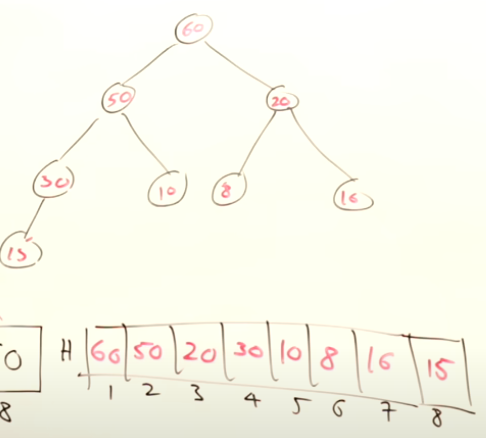 60
50 20
30 10 8 16
15
0 H 60 50 20 30 10 8 16 15
8 1 2 3 4 5 6 7 8